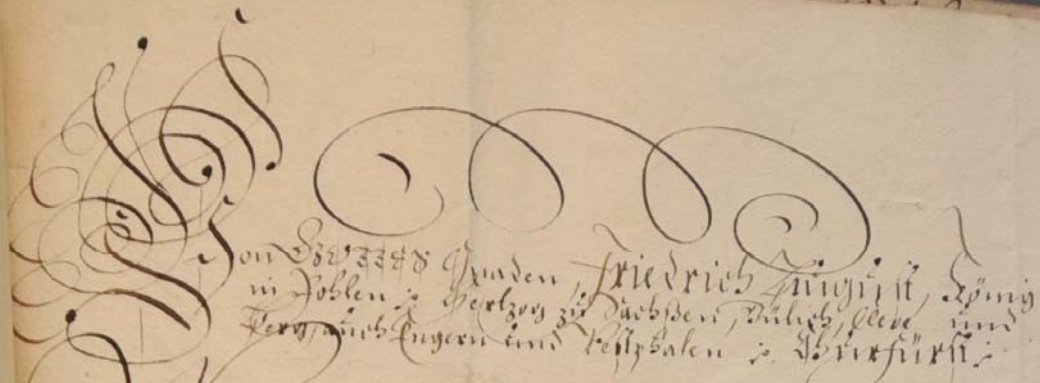 Von GOTTES Gnaden, Friedrich August, König
in Pohlen :c: Hertzog zu Sachßen, Jülich, Cleve und
Berg, auch Engern und Westphalen :c: Churfürst :c: